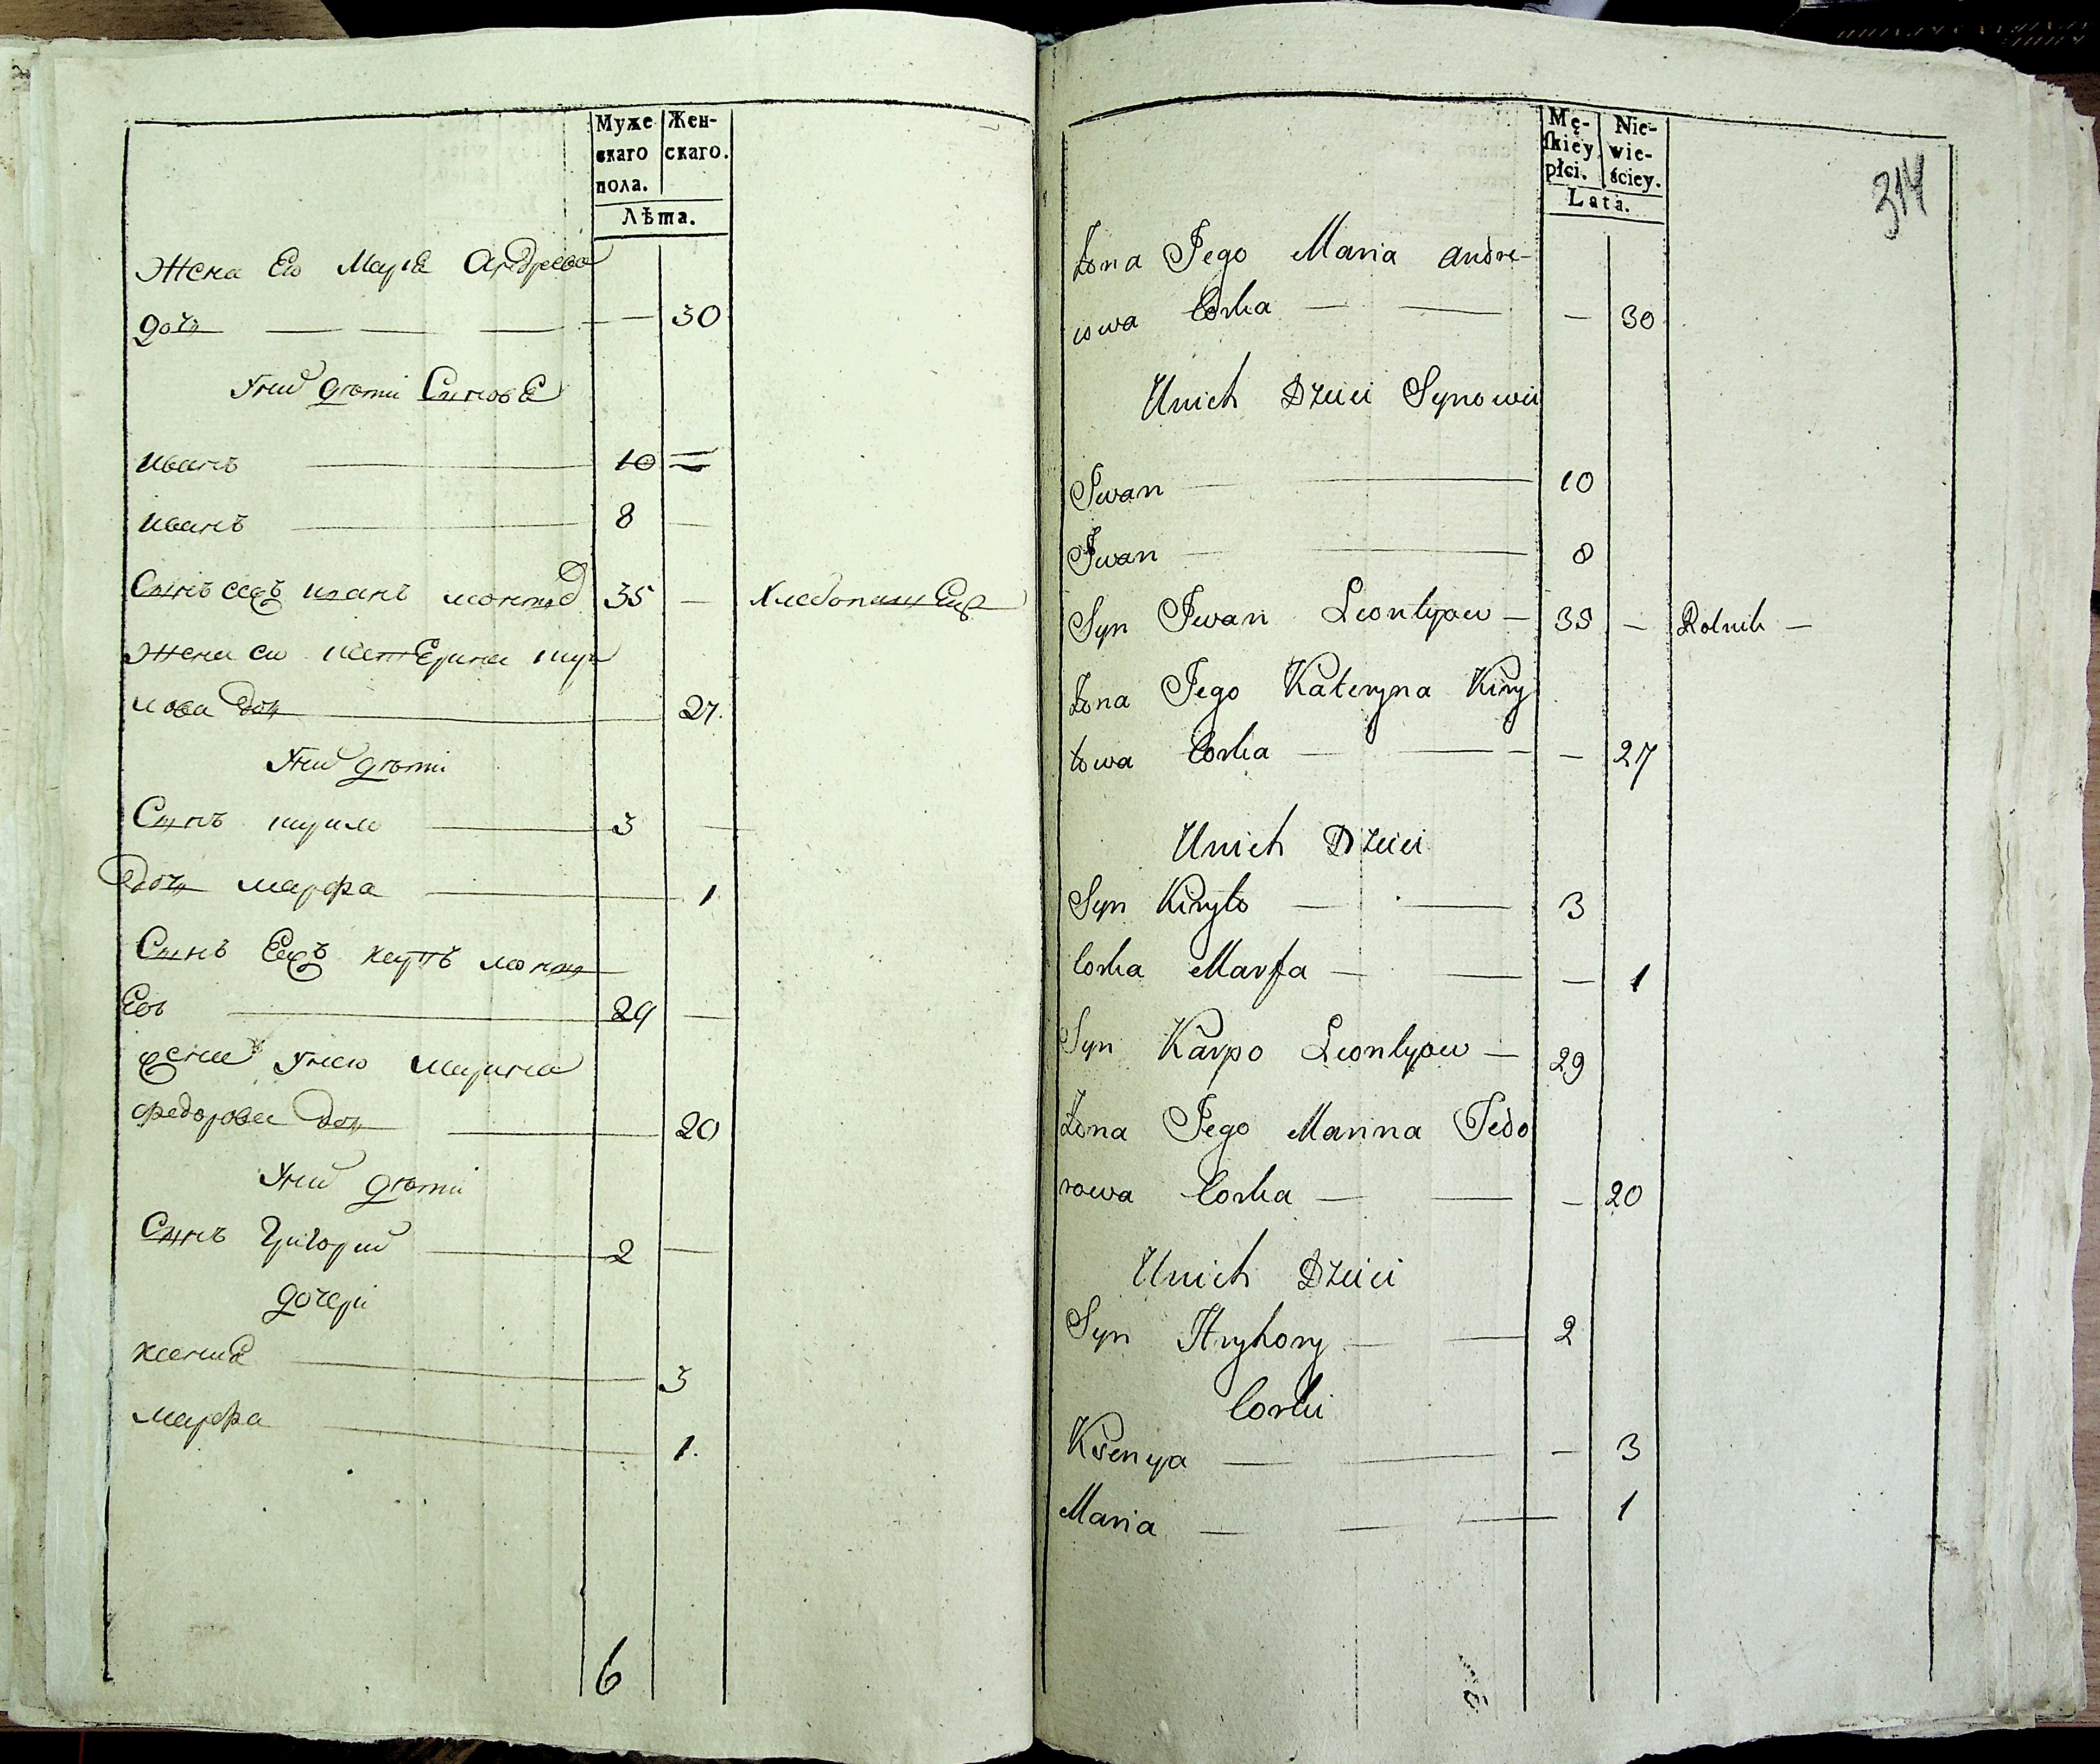 Муже
скаго
пола.
Жен-
скаго.
Лѣта.
Жена Его Марія Андреева
дочь — — — — — 30
Уних дѣти Синовѣ
иванъ — 10 —
иванъ — 8 —
Синъ иванъ 35 — Хлебопашец
Жена ею катерина кири
лова доч — 27.
Уних дѣти
Синъ кирило — 3 —
Доч марфа — 1
Синъ карпъ леонти
Евъ — 29 —
Жена унего марина
федорова доч — 20
Уних дѣти
Синъ Григорий — 2 —
дочери
ксения — 3
марфа — 1.
6
Mę-
skiey
płci.
Nie-
wie-
ściey.
Lata.
314
Żona Jego Maria Andre-
iowa Corka — — — 30
Unich Dzieci Synowie
Iwan — — 10
Iwan — — 8
Syn Iwan Leontyew — 35 — Rolnik —
Żona Jego Kateryna Kiry
łowa Corka — — — 27
Unich Dzieci
Syn Kiryło — — 3
Corka Marfa — — — 1
Syn Karpo Leontyew — 29
Żona Jego Marina Fedo
rowa Corka — — — 20
Unich Dzieci
Syn Hryhory — — 2
Corki
Ksenya — — — 3
Maria — — — 1